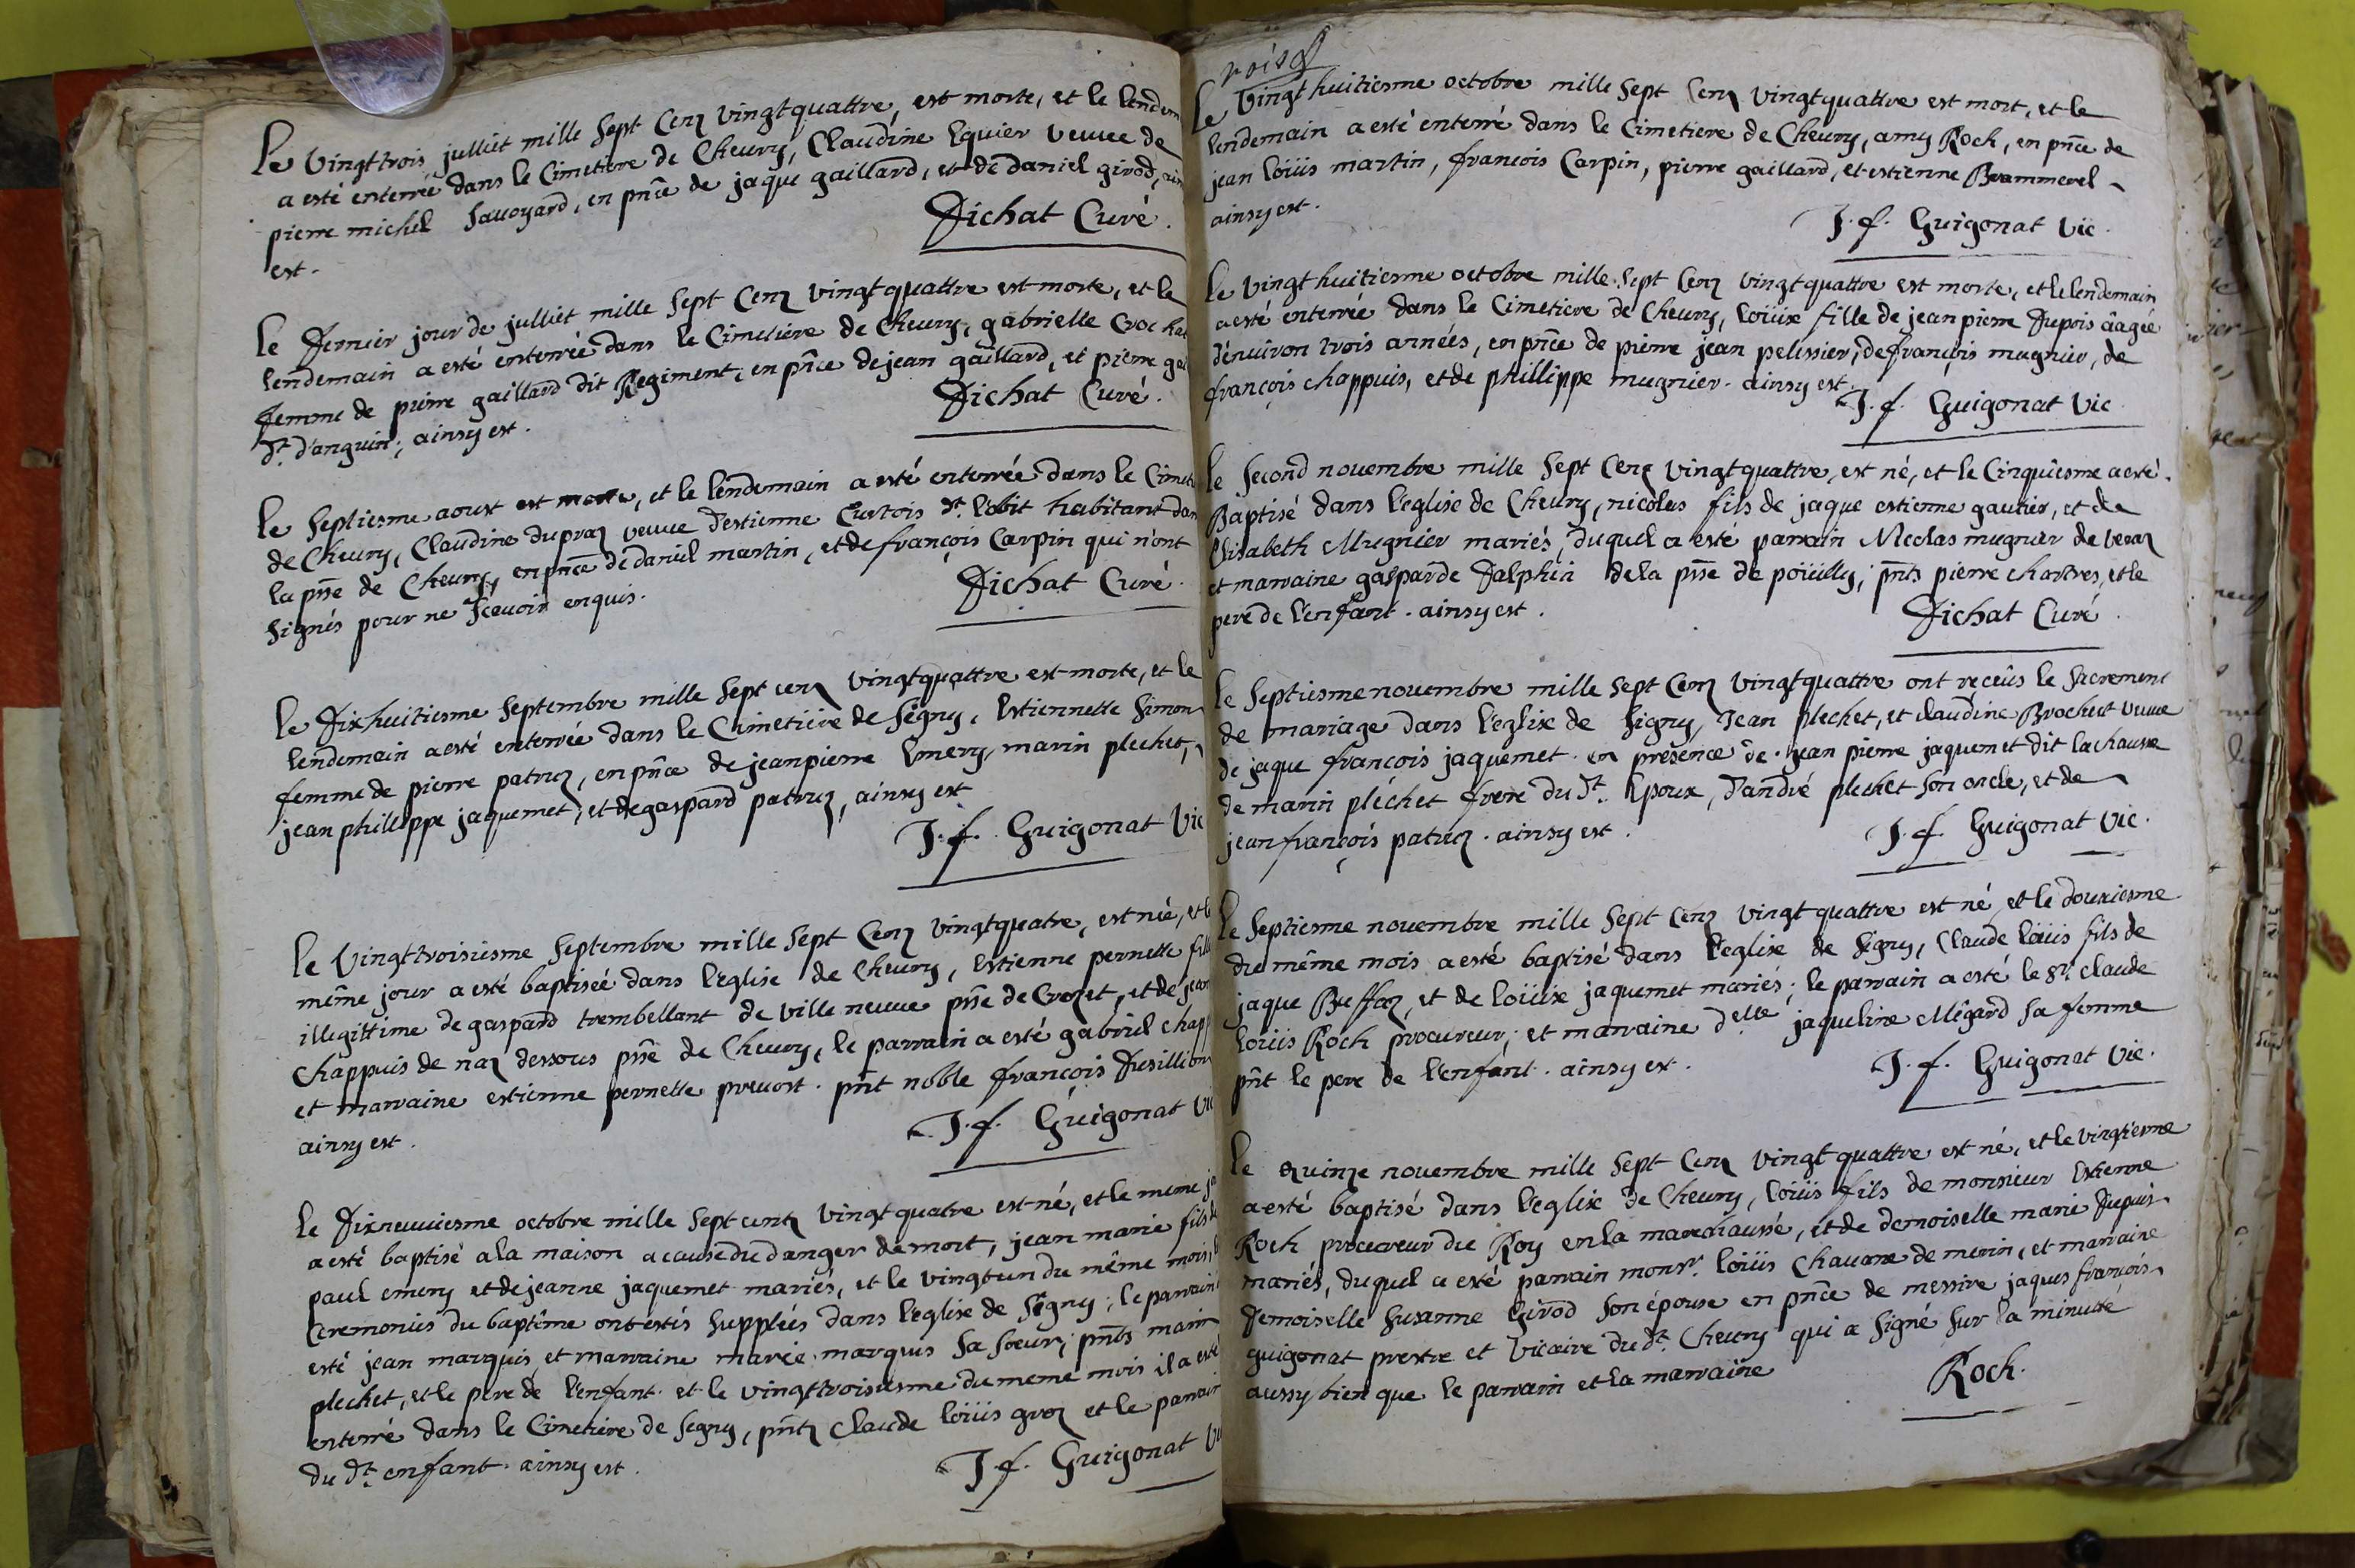 Le Vingttrois julliet mille Sept Cenz vingtquattre, est morte, et le lendem
a esté enterrée dans le Cimetiere de Cheury, Claudine Equier veuue de
pierre michel Sauoyard, en pñce de jaque gaillard, et de daniel girod, ain
est.
Dichat Curé.
Le dernier jour de julliet mille Sept Cenz vingtquattre est morte, et le
lendemain a esté enterrée dans le Cimetiere de Cheury, gabrielle Crochet
femme de pierre gaillard dit Regiment, en pñce de jean gaillard, et pierre ga
dt. d'anguin; ainsy est.
Dichat Curé.
Le Septiesme aoust est morte, et le lendemain a esté enterrée dans le Cimet
de Cheury, Claudine dupraz veuue d'estienne Curtois dt. l'obit habitant dan
la pñse de Cheury, en pñce de daniel martin, et de françois Carpin qui n'ont
Signés pour ne Sçeuoir enquis.
Dichat Curé.
Le Dixhuitiesme Septembre mille Sept cenz vingtquattre est morte, et le
lendemain a esté enterrée dans le Cimetiere de Segny, Estiennette Simon
femme de pierre patruz, en pñce de jeanpierre Emery, marin plechet,
jean philippe jaquemet, et de gaspard patruz, ainsy est
J. f. Guigonat Vic
Le Vingttroisiesme Septembre mille Sept Cenz vingtquatre, est née, et le
même jour a esté baptisée dans l'eglise de Cheury, Estienne pernette fille
illegittime de gaspard trembellant de ville neuue pñse de Crozet, et de jean
Chappuis de naz dessous pñse de Cheury, le parrain a esté gabriel chapp
et marraine estienne pernette preuost. pñt noble françois Dusillion
ainsy est.
J. f. Guigonat Vi
Le Dixneuuiesme octobre mille Sept centz vingtquatre est né, et le meme j
a esté baptisé a la maison a cause du danger de mort, jean marie fils de
paul emery et de jeanne jaquemet mariés, et le vingtun du même mois, l
Ceremonies du baptême ont estés Suppléés dans l'eglise de Segny; le parrain
esté jean marquis, et marraine mariee marquis Sa Soeur, pñts marin
plechet, et le pere de l'enfant. et le vingttroisiesme du meme mois il a esté
enterré dans le Cimetiere de Segny, pñtz Claude loüis groz et le parrain
du dt. enfant. ainsy est.
J. f. Guigonat Vi
Le Vingthuitiesme octobre mille Sept Cenz vingtquattre est mort, et le
lendemain a esté enterré dans le Cimetiere de Cheury, amy Roch, en pñce de
jean loüis martin, francois Carpin, pierre gaillard, et estienne Brammerel
ainsy est.
J. f. Guigonat Vic.
Le vingthuitiesme octobre mille Sept Cenz vingtquattre est morte, et le lendemain
a esté enterrée dans le Cimetiere de Cheury, loüise fille de jean pierre Dupois âagée
d'enuiron trois années, en pñce de pierre jean pelissier, de françois mugnier, de
françois chappuis, et de phillippe mugnier. ainsy est.
J. f. Guigonat Vic
Le Second nouembre mille Sept Cenz vingtquattre, est né, et le Cinquiesme a esté.
Baptisé dans l'eglise de Cheury, nicolas fils de jaque estienne gautier, et de
Elisabeth Mugnier mariés, duquel a esté parrain Nicolas mugnier de veraz
et marraine gasparde Dalphin de la pñse de poüilly; pñts pierre chartres, et le
pere de l'enfant. ainsy est.
Dichat Curé
Le Septiesme nouembre mille Sept Cenz vingtquattre ont receûs le Sacrement
de mariage dans l'eglise de Signy, Jean plechet, et claudine Brochut veuue
de jaque françois jaquemet. en présence de jean pierre jaquemet dit lachause
de marin pléchet frere du dt. Epoux, d'andré plechet Son oncle, et de
jean françois patruz. ainsy est.
J. f. Guigonat Vic.
Le Septiesme nouembre mille Sept Cenz vingtquattre est né et le douxiesme
du même mois a esté baptisé dans l'eglise de Signy, Claude loüis fils de
jaque Buffaz, et de loüise jaquemet mariés; le parrain a esté le Sr. claude
loüis Roch procureur, et marraine delle jaqueline Mégard Sa femme
pñt le pere de l'enfant. ainsy est.
J. f. Guigonat Vic.
Le quinze nouembre mille Sept Cenz vingtquattre est né, et le vingtiesme
a esté baptisé dans l'eglise de Cheury, loüis fils de monsieur Estienne
Roch procureur du Roy en la marechaussé, et de demoiselle marie Dupuis
mariés, duquel a esté parrain monsr. loüis Chauane de meirin, et marraine
Demoiselle Susanne Girod Son épouse en pñce de messire jaques françois
guigonat prestre et Vicaire du dt. Cheury qui a Signé Sur la minutté
aussy bien que le parrain et la marraine
Roch.